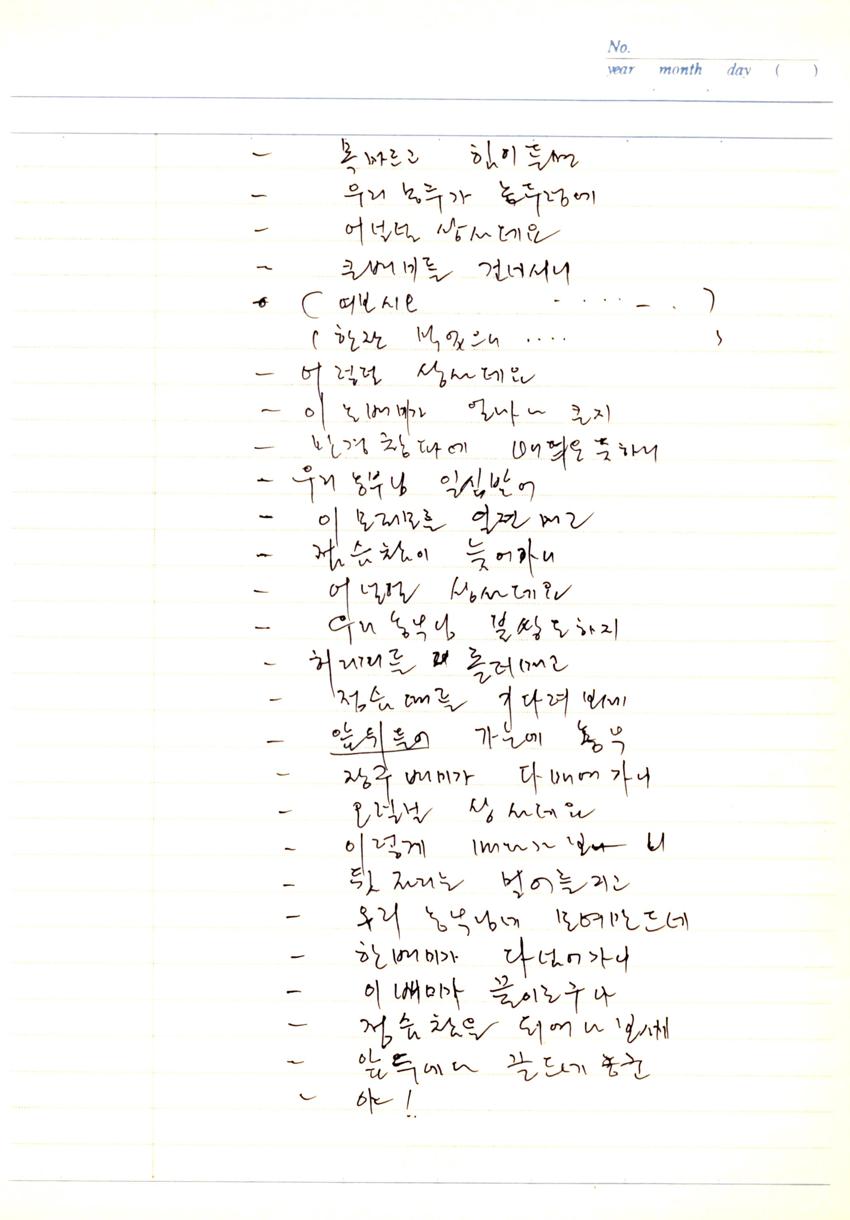 No.
year month day ( )
- 목마르고 힘이들면
- 우리 농부가 논두렁에
- 어널널 상사데요
- 큰배미를 건너서니
( 떠보시오 - .... - . )
( 한잔 먹었으니 .... )
- 어럴럴 상사데요
- 이 논배미가 얼마나 큰지
- 만경창파에 배 띄운 듯하니
- 우리 농부님 일심받어
- 이 모제모를 열련
- 점슴참이 늦어가니
- 어널널 상사데요
- 우리 농부님 불쌍도하지
- 허리띠를 졸라매고
- 점슴때를 기다려 보세
- 앞뒤들어 가는에 농부
- 장구배미가 다 배어가니
- 오럴널 상사데요
- 이렇게 보니
- 뒷자리는 벌어들리고
- 우리 농부님네
- 한배미가 다 넘어가니
- 이 배미가 끝이로구나
- 점슴참을 되어나 보세
- 앞두에나
- 아 !